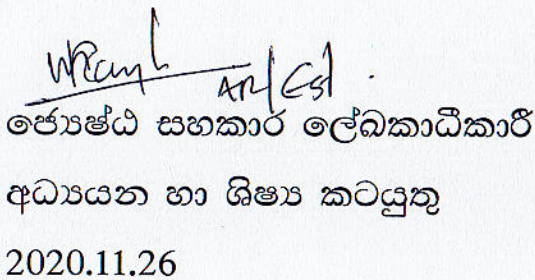 AR/Est.
ජ්‍යෙෂ්ඨ සහකාර ලේඛකාධිකාරී
අධ්‍යයන හා ශිෂ්‍ය කටයුතු
2020.11.26